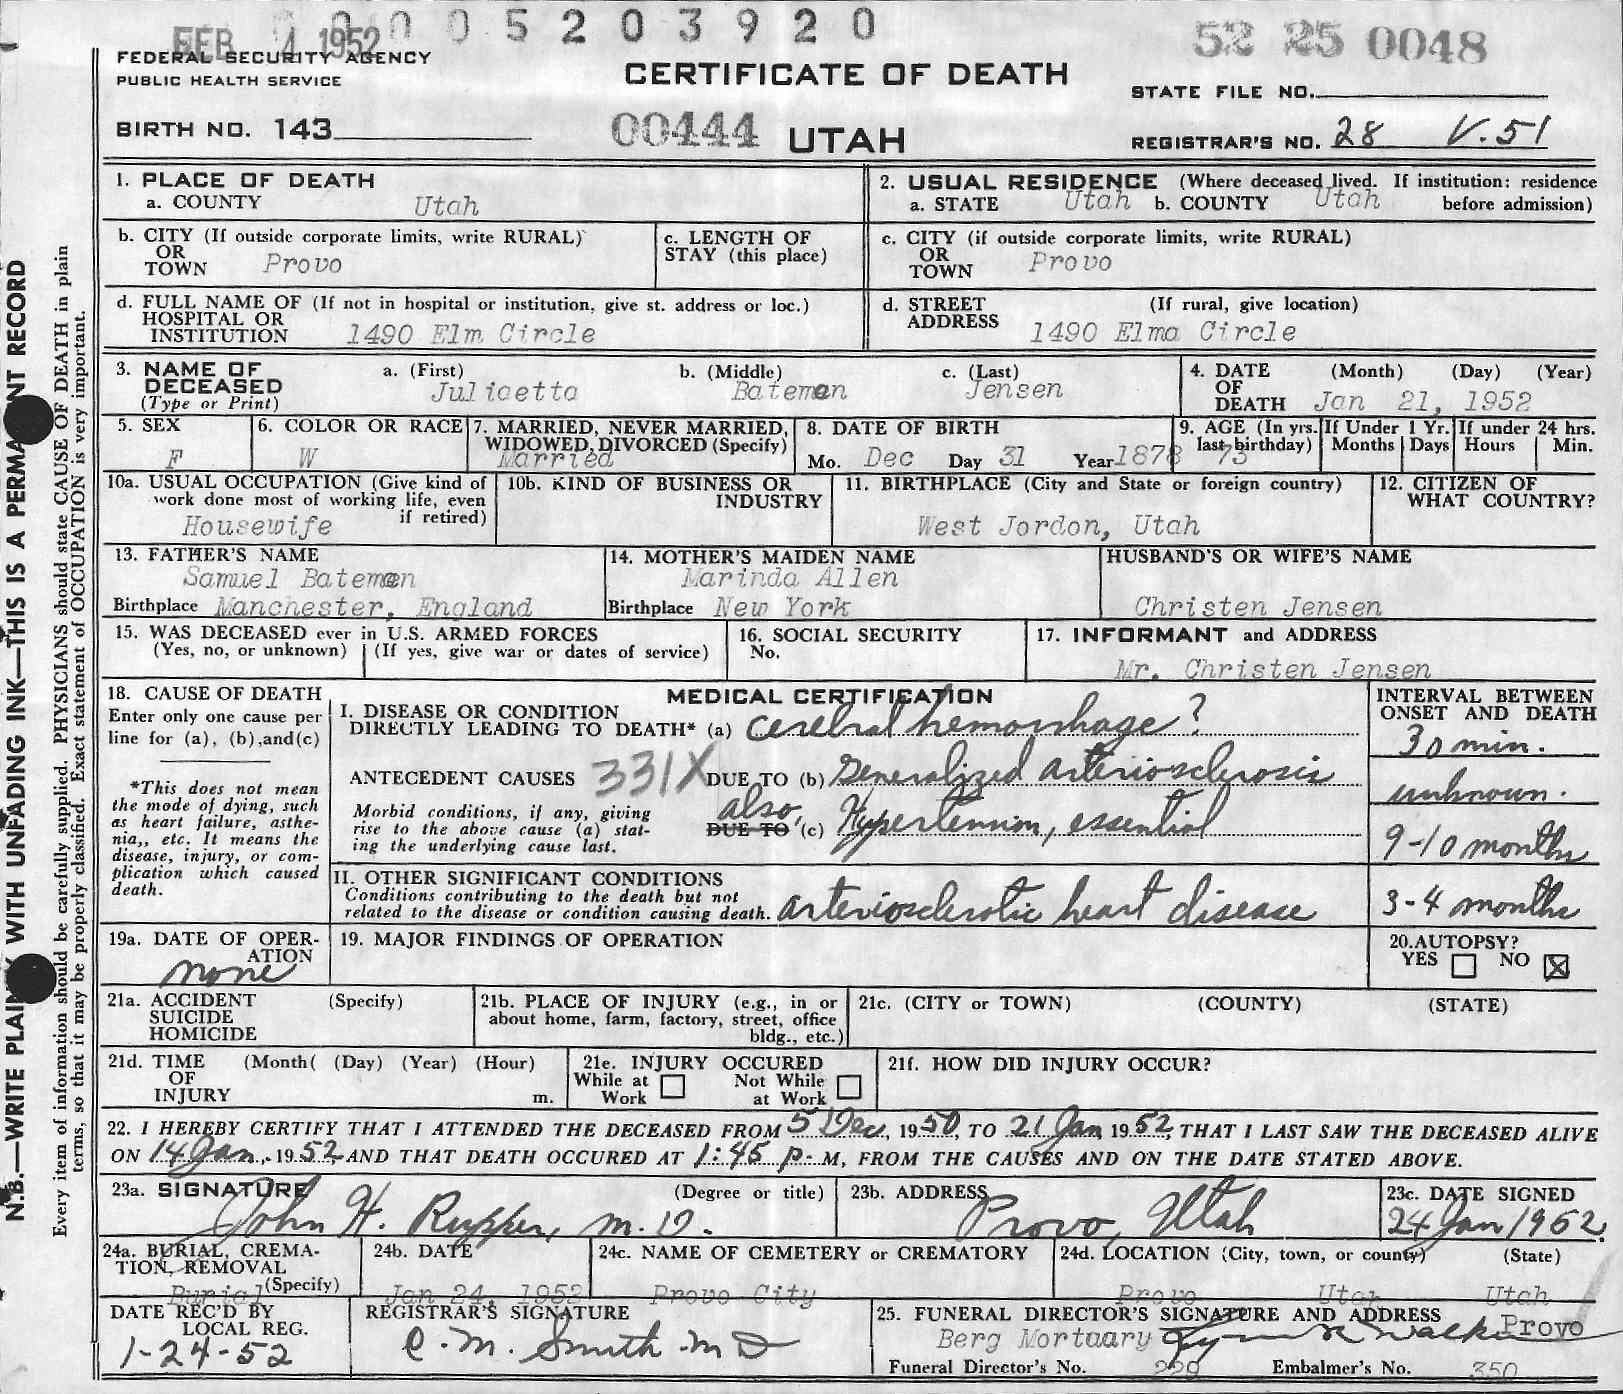 FEB 4 1952 0 0 0 5 2 0 3 9 2 0
52 25 0048
FEDERAL SECURITY AGENCY
PUBLIC HEALTH SERVICE
CERTIFICATE OF DEATH
STATE FILE NO.
BIRTH NO. 143
00444 UTAH
REGISTRAR'S NO. 28 V.51
1. PLACE OF DEATH
a. COUNTY Utah
2. USUAL RESIDENCE (Where deceased lived. If institution: residence before admission)
a. STATE Utah b. COUNTY Utah
b. CITY (If outside corporate limits, write RURAL)
OR
TOWN Provo
c. LENGTH OF
STAY (this place)
c. CITY (if outside corporate limits, write RURAL)
OR
TOWN Provo
d. FULL NAME OF (If not in hospital or institution, give st. address or loc.)
HOSPITAL OR
INSTITUTION 1490 Elm Circle
d. STREET (If rural, give location)
ADDRESS 1490 Elma Circle
3. NAME OF
DECEASED
(Type or Print)
a. (First) b. (Middle) c. (Last)
Julicetta Bateman Jensen
4. DATE (Month) (Day) (Year)
OF
DEATH Jan 21, 1952
5. SEX
F
6. COLOR OR RACE
W
7. MARRIED, NEVER MARRIED,
WIDOWED, DIVORCED (Specify)
Married
8. DATE OF BIRTH
Mo. Dec Day 31 Year 1878
9. AGE (In yrs. last birthday)
73
If Under 1 Yr.
Months Days
If under 24 hrs.
Hours Min.
10a. USUAL OCCUPATION (Give kind of
work done most of working life, even
if retired)
Housewife
10b. KIND OF BUSINESS OR
INDUSTRY
11. BIRTHPLACE (City and State or foreign country)
West Jordon, Utah
12. CITIZEN OF
WHAT COUNTRY?
13. FATHER'S NAME
Samuel Bateman
Birthplace Manchester, England
14. MOTHER'S MAIDEN NAME
Marinda Allen
Birthplace New York
HUSBAND'S OR WIFE'S NAME
Christen Jensen
15. WAS DECEASED ever in U.S. ARMED FORCES
(Yes, no, or unknown) (If yes, give war or dates of service)
16. SOCIAL SECURITY
No.
17. INFORMANT and ADDRESS
Mr. Christen Jensen
18. CAUSE OF DEATH
Enter only one cause per
line for (a), (b),and(c)
*This does not mean
the mode of dying, such
as heart failure, asthe-
nia,, etc. It means the
disease, injury, or com-
plication which caused
death.
MEDICAL CERTIFICATION
I. DISEASE OR CONDITION
DIRECTLY LEADING TO DEATH* (a) cerebral hemorrhage?
ANTECEDENT CAUSES 331X DUE TO (b) Generalized arteriosclerosis
Morbid conditions, if any, giving
rise to the above cause (a) stat-
ing the underlying cause last.
also,
DUE TO (c) Hypertension, essential
II. OTHER SIGNIFICANT CONDITIONS
Conditions contributing to the death but not
related to the disease or condition causing death. arteriosclerotic heart disease
INTERVAL BETWEEN
ONSET AND DEATH
30 min.
unknown.
9-10 months
3-4 months
19a. DATE OF OPER-
ATION
none
19. MAJOR FINDINGS OF OPERATION
20. AUTOPSY?
YES NO X
21a. ACCIDENT (Specify)
SUICIDE
HOMICIDE
21b. PLACE OF INJURY (e.g., in or
about home, farm, factory, street, office
bldg., etc.)
21c. (CITY or TOWN) (COUNTY) (STATE)
21d. TIME (Month( (Day) (Year) (Hour)
OF
INJURY m.
21e. INJURY OCCURED
While at Work Not While at Work
21f. HOW DID INJURY OCCUR?
22. I HEREBY CERTIFY THAT I ATTENDED THE DECEASED FROM 5 Dec, 1950, TO 21 Jan 1952, THAT I LAST SAW THE DECEASED ALIVE
ON 14 Jan, 1952, AND THAT DEATH OCCURED AT 1:45 P. M, FROM THE CAUSES AND ON THE DATE STATED ABOVE.
23a. SIGNATURE (Degree or title)
John H. Rupper, M.D.
23b. ADDRESS
Provo, Utah
23c. DATE SIGNED
24 Jan 1952
24a. BURIAL, CREMA-
TION, REMOVAL
(Specify)
Burial
24b. DATE
Jan 24, 1952
24c. NAME OF CEMETERY or CREMATORY
Provo City
24d. LOCATION (City, town, or county) (State)
Provo Utah Utah
DATE REC'D BY
LOCAL REG.
1-24-52
REGISTRAR'S SIGNATURE
C. M. Smith MD
25. FUNERAL DIRECTOR'S SIGNATURE AND ADDRESS
Berg Mortuary Provo
Funeral Director's No. 229 Embalmer's No. 350
N.B.—WRITE PLAINLY WITH UNFADING INK—THIS IS A PERMANENT RECORD
Every item of information should be carefully supplied. PHYSICIANS should state CAUSE OF DEATH in plain
terms, so that it may be properly classified. Exact statement of OCCUPATION is very important.